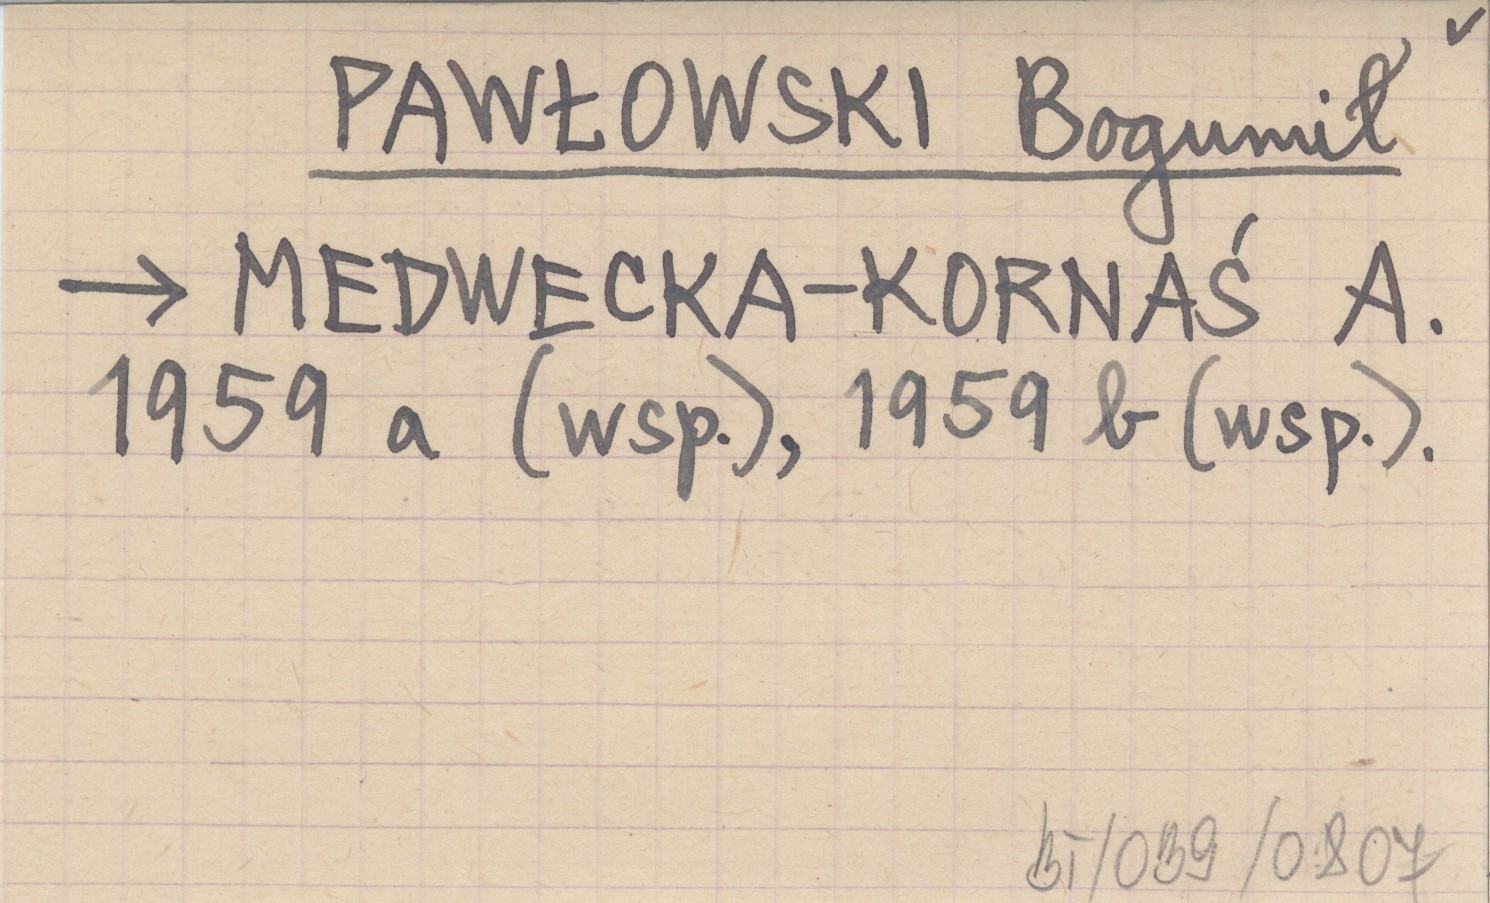 PAWŁOWSKI Bogumił
→ MEDWECKA-KORNAŚ A.
1959 a (wsp.), 1959 b (wsp.).
BI/039/0807